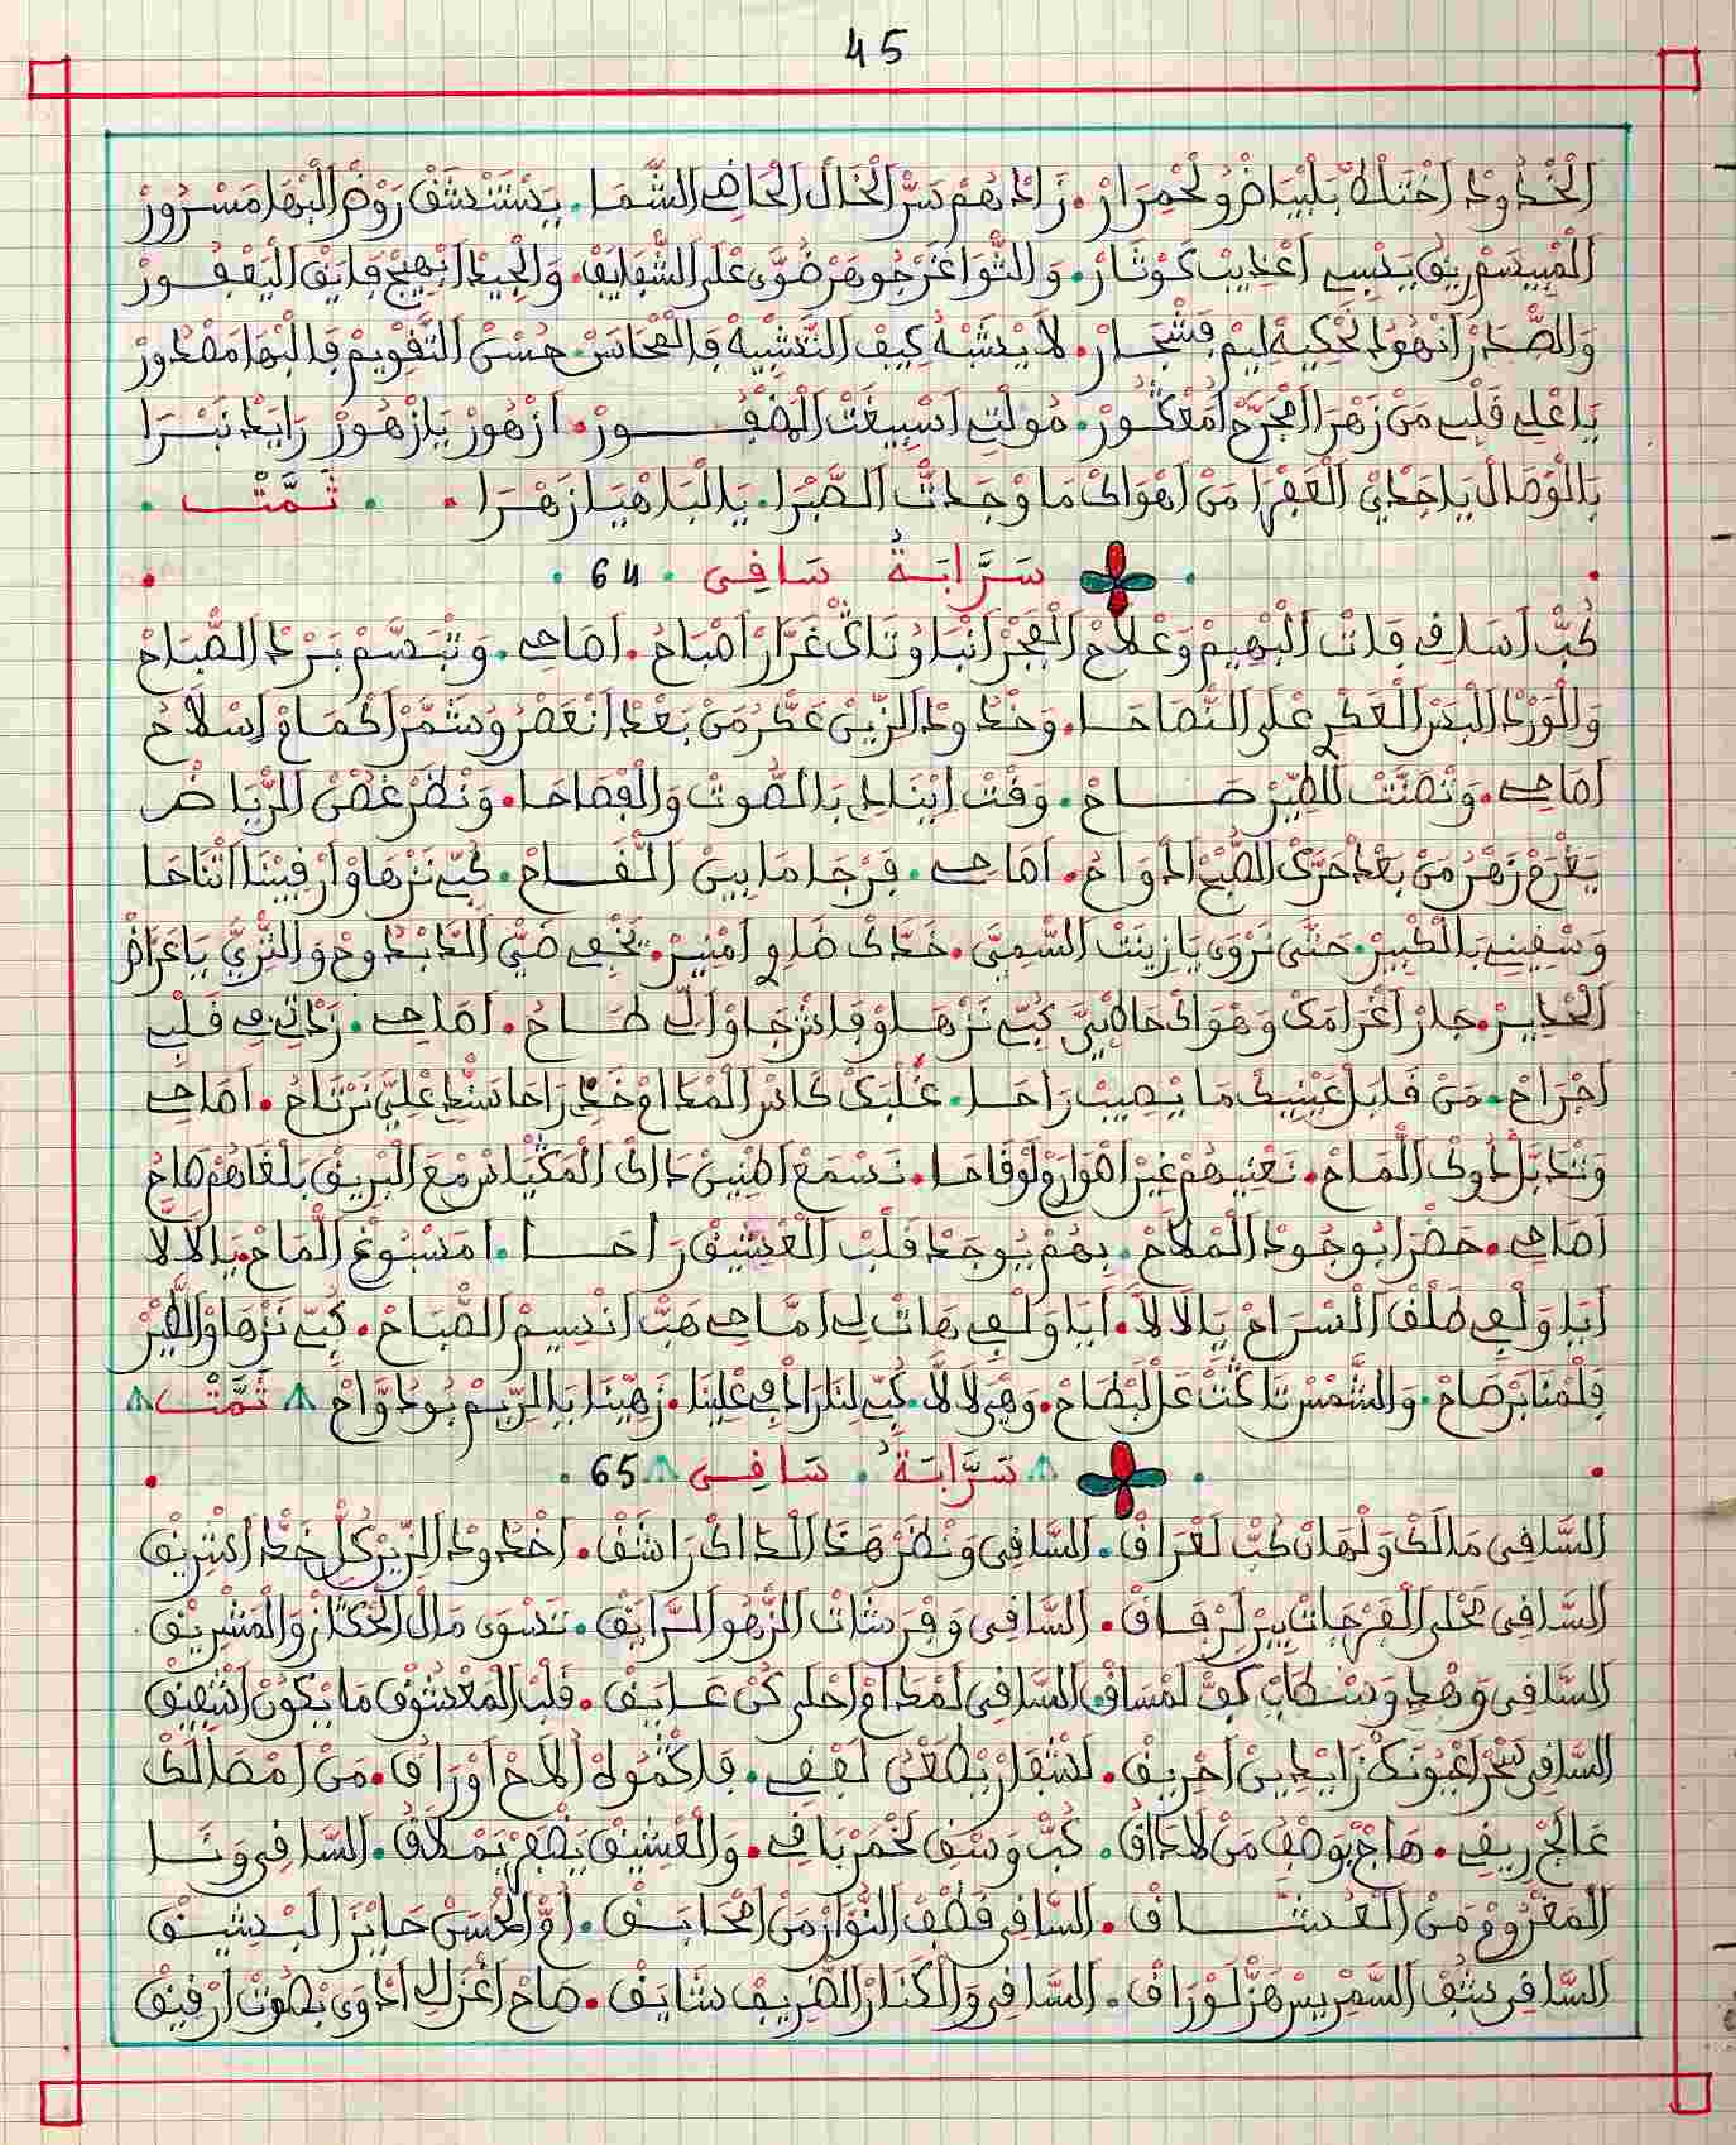 45
الْخْدُودْ اخْتَلْطْ بَلْبْيَاضْ وُلَحْمِرَارْ. زَادْهُمْ سَرّ الْخَالْ الْحَاضِي الشَّمَا. يَسْتَنْشَقْ رَوْضْ الْبْهَا مَسْرُورْ
الْمْبِيسَمْ رِيقْ يَنْسِي اعْذِيبْ كَوْثَارْ. وَالثْوَاغَرْ جُوهَرْ ضْوَى عْلَى الشّْفَايَفْ. وَالْجِيدْ ابْهِيجْ فَايَقْ الْيَعْفُورْ
وَالصّْدَرْ انْهُودْ تَحْكِيهْ لِيمْ فَشْجَارْ. لَا يَشْبَهْ كِيفْ التَّشْبِيهْ فَالْمْحَاسَنْ. حُسْنْ التَّقْوِيمْ فَالْبْهَا مَقْدُورْ
يَاعْلِي قَلْبِي مَنْ زَهْرَا امْجَرَّحْ امْعَكُّورْ. مُولْتِي اسْبِيغْتْ الضْفُورْ. ازْهُورْ يَا زْهُورْ رَايَدْ نَبْرَا
بَالْوْصَالْ يَا خَدِّي الْقَمْرَا مَنْ اهْوَاكْ مَا وْجَدْتْ الصَّبْرَا. يَا لْبَاهْيَا زَهْرَا . . ثَمَّتْ .
سَرَّابَةُ سَاقِى . 64 .
كُبّْ اسَاقِي فَاتْ الْبْهِيمْ وَعْلَاحْ الْفْجَرْ انْبَاوْتَاكْ غَرَّارْ اصْبَاحْ. اصَاحِي. وَتْبَسَّمْ بَرْدْ الصّْبَاحْ
وَالْوَرْدْ الْبَدْرْ الْعَكْرِي عْلَى النّْصَاحَا. وَخْدُودْ الزِّينْ عَكْرُ مَنْ بَعْدْ انْعَصْرُ وَشْمَّرْ اكْمَامْ اسْلَاحْ
اصَاحِي. وَنْصَنَّتْ لَلطّيْرْ صَاحْ. وَقْتْ ايْنَادِي بَالصُّوتْ وَالْفْصَاحَا. وَنْظَرْ غَصْنْ الرّْيَاضْ
يَفْرَحْ زَهْرُ مَنْ بَعْدْ حَرّكْ الصّْبَحْ ادْوَاحْ. اصَاحِي. فَرْجَا مَا بِينْ الْقَّاحْ. كُبّْ نَزْهَاوْا رْفِيقْنَا اتْنَاحَا
وَسْقِينِي بَالْكْبِيرْ. حَتَّى نَرْوَى يَا زِينَتْ السّْمِيَّ. خَدّكْ ضَاوِي امْنِيرْ. يَخْفِي ضَيّْ الدَّابْدُوحْ وَالثْرِيَّ يَا غْرَاضْ
الْخْدِيرْ. جَارْ اغْرَامَكْ وَهْوَاكْ حَاطْ بِيَّ كُبّْ نَزْهَاوْ فَاشْ جَاوْ الِّي طَاحْ. اصَاحِي. زَدْتِي فِي قَلْبِي
اجْرَاحْ. مَنْ قَابَلْ عَيْنِيكْ مَا يْصِيبْ رَاحَا. عْلَبَكْ كَاسْ الْمْدَامْ خَدّ رَاحَا شَدّ عْلِيَّ نَرْتَاحْ. اصَاحِي
وَنْتَدَبَّلْ دُوكْ الْمَاحْ. نَعْنِيهُمْ غِيرْ اهْوَارْ وُلَوْقَاحَا. نَسْمَعْ اطْنِينْ دَاكْ الْمَكْيَاسْ مْعَ الْبْرِيقْ بَلْغَاهُمْ صَاحْ
اصَاحِي. حَضْرَا بُوجُودْ الْمْلَاحْ. بِهُمْ يُوجَدْ قَلْبْ الْعْشِيقْ رَاحَا. امَصْبُوغْ الْمَاحْ. يَا لَا لَا
أَيَا وَلْفِي طَلْفْ السّْرَاحْ يَا لَا لَا. أَيَا وَلْفِي هَاتْ لِي امَّاحِي هَبّْ انْسِيمْ الصّْبَاحْ. كُبّْ نَزْهَاوْ الطّيْرْ
فَلْمْنَابَرْ صَاحْ. وَالشَّمْسْ تَاكَّتْ عَالْبْطَاحْ. وَهْيَ لَا لَا. كُبّْ لَنَا رَاهْ عْلِينَا. زَهِّينَا يَا الرِّيمْ بُودْوَاحْ ثَمَّتْ
سَرَّابَةُ . سَاقِى 65 .
السَّاقِى مَالَكْ وَلْهَانْ كُبّْ لَعْرَاقْ. السَّاقِى وَنْظَرْ هَذَا الْدَاكْ رَاشَقْ. اخْدُودْ الزِّيرْ كُلّْ خَدّْ اشْرِيقْ
السَّاقِى مَحْلَى الْفَرْجَاتْ بِيرْ لَرْفَاقْ. السَّاقِى وَفْرَشَاتْ الزّْهُو الرَّايَقْ. تَسْوَى مَالْ الْحْكَّازْ وَالْمَشْرِيقْ
السَّاقِى وَهْدِ وَسْطَابْ كَفّْ لَمْسَاقْ السَّاقِى لَمْدَامْ احْلَى كُنْ عَايَقْ. قَلْبْ الْمَعْشُوقْ مَا يْكُونْ اشْفِيقْ
السَّاقِى سْحَرْ اعْيُونَكْ زَايَدْ بِينْ احْرِيقْ. لَشْفَارْ يْطَعْنُ لَفْقِي. فَاكْمُولْهْ الَاحْ اوْرَاقْ. مَنْ امْصَالَكْ
عَالَجْ رِيقِي. هَاجْ بُوصْفُ مَنْ لَادَاقْ. كُبّْ وَسْقِي لَخْمَرْ بَاقِي. وَالْعْشِيقْ يَضْفَرْ يَمْلَاقْ. السَّاقِى وَنَا
الْمَغْرُومْ مَنْ الْعُشَّاقْ. السَّاقِى قْطَفْ النُّوَّارْ مَنْ الْحْدَايَقْ. امّْ الْحُسْنْ حَايْزَا الْبْشِيقْ
السَّاقِى شَفّْ السَّمْرِيسْ هَزّْ لَوْرَاقْ. السَّاقِى وَالْكْنَارْ الظّْرِيفْ شَايَقْ. صَاحْ اغْزَالِي ادْوَى بْصُوتْ ارْقِيقْ